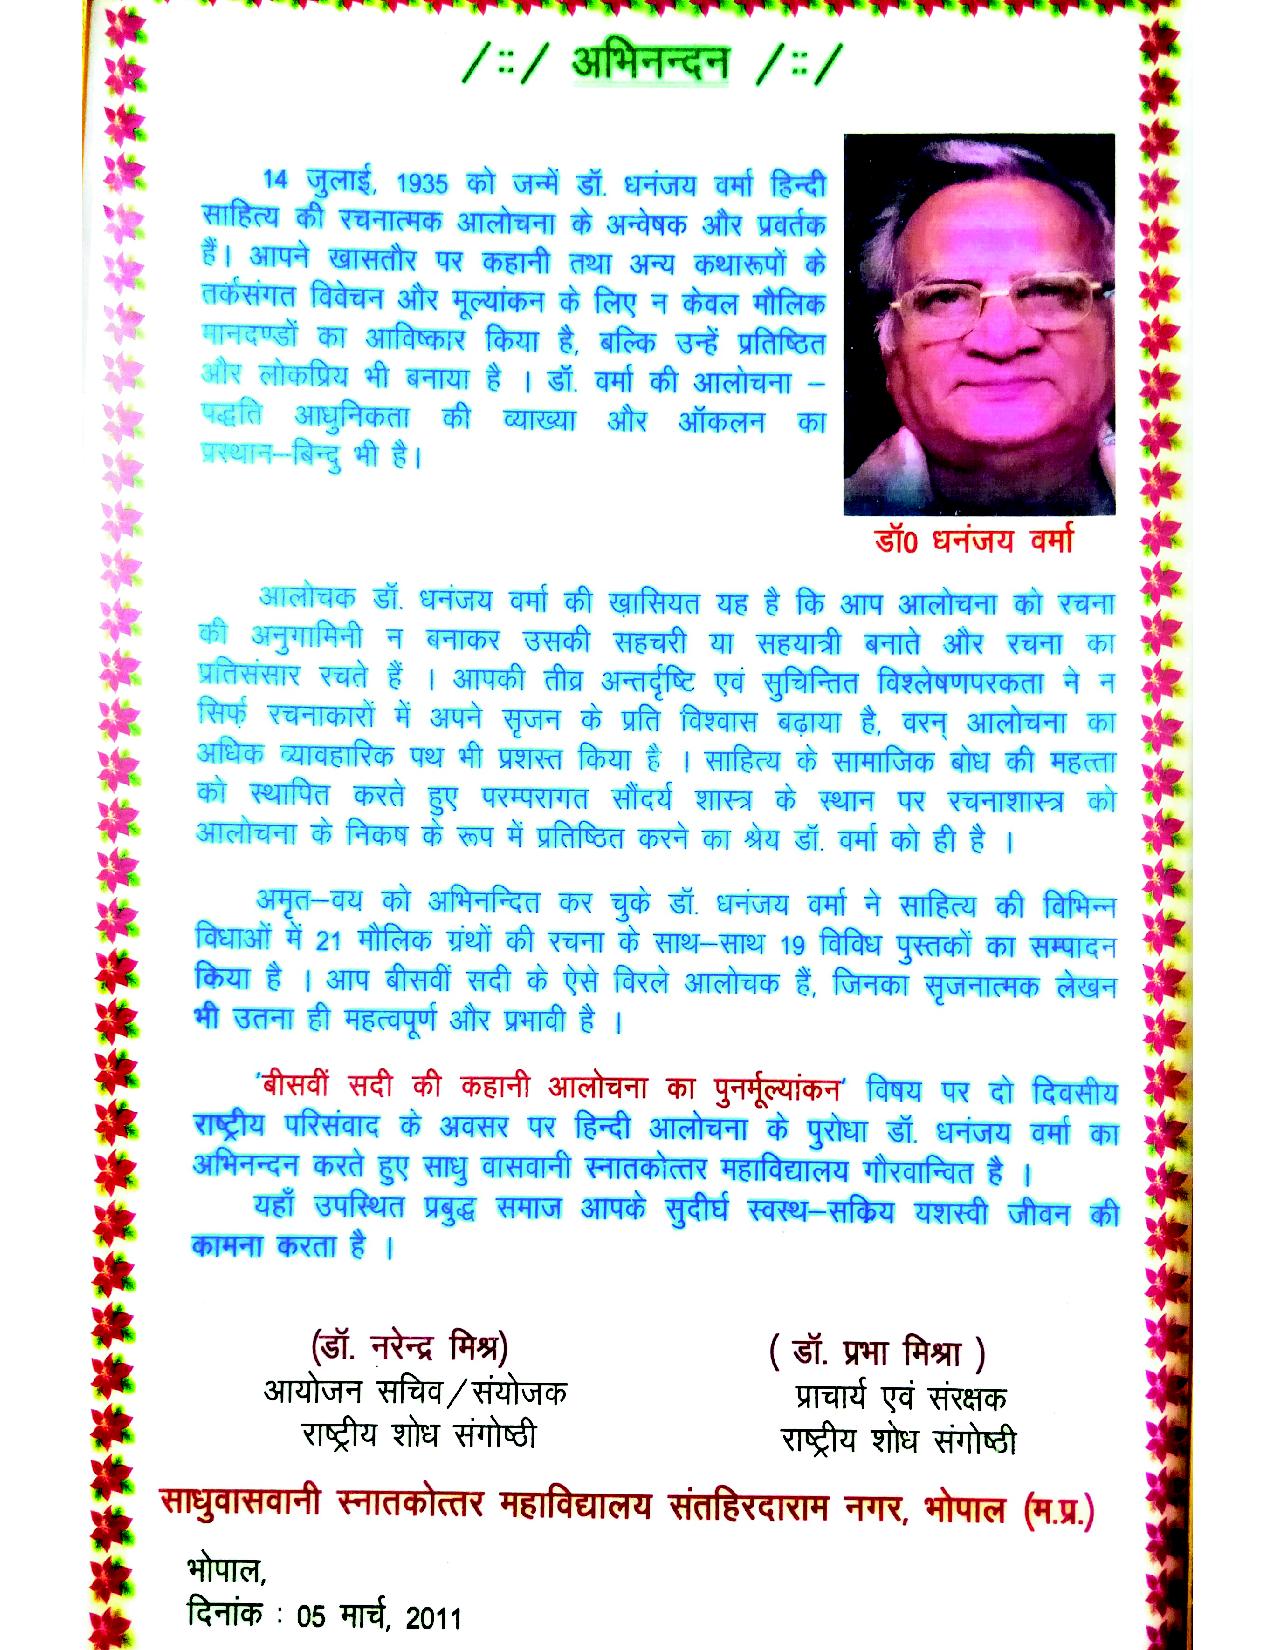 /::/ अभिनन्दन /::/
14 जुलाई, 1935 को जन्में डॉ. धनंजय वर्मा हिन्दी
साहित्य की रचनात्मक आलोचना के अन्वेषक और प्रवर्तक
हैं। आपने खासतौर पर कहानी तथा अन्य कथारूपों के
तर्कसंगत विवेचन और मूल्यांकन के लिए न केवल मौलिक
मानदण्डों का आविष्कार किया है, बल्कि उन्हें प्रतिष्ठित
और लोकप्रिय भी बनाया है । डॉ. वर्मा की आलोचना –
पद्धति आधुनिकता की व्याख्या और ऑकलन का
प्रस्थान–बिन्दु भी है।
डॉ0 धनंजय वर्मा
आलोचक डॉ. धनंजय वर्मा की ख़ासियत यह है कि आप आलोचना को रचना
की अनुगामिनी न बनाकर उसकी सहचरी या सहयात्री बनाते और रचना का
प्रतिसंसार रचते हैं । आपकी तीव्र अन्तर्दृष्टि एवं सुचिन्तित विश्लेषणपरकता ने न
सिर्फ़ रचनाकारों में अपने सृजन के प्रति विश्वास बढ़ाया है, वरन् आलोचना का
अधिक व्यावहारिक पथ भी प्रशस्त किया है । साहित्य के सामाजिक बोध की महत्ता
को स्थापित करते हुए परम्परागत सौंदर्य शास्त्र के स्थान पर रचनाशास्त्र को
आलोचना के निकष के रूप में प्रतिष्ठित करने का श्रेय डॉ. वर्मा को ही है ।
अमृत–वय को अभिनन्दित कर चुके डॉ. धनंजय वर्मा ने साहित्य की विभिन्न
विधाओं में 21 मौलिक ग्रंथों की रचना के साथ–साथ 19 विविध पुस्तकों का सम्पादन
किया है । आप बीसवीं सदी के ऐसे विरले आलोचक हैं, जिनका सृजनात्मक लेखन
भी उतना ही महत्वपूर्ण और प्रभावी है ।
'बीसवीं सदी की कहानी आलोचना का पुनर्मूल्यांकन' विषय पर दो दिवसीय
राष्ट्रीय परिसंवाद के अवसर पर हिन्दी आलोचना के पुरोधा डॉ. धनंजय वर्मा का
अभिनन्दन करते हुए साधु वासवानी स्नातकोत्तर महाविद्यालय गौरवान्वित है ।
यहाँ उपस्थित प्रबुद्ध समाज आपके सुदीर्घ स्वस्थ–सक्रिय यशस्वी जीवन की
कामना करता है ।
(डॉ. नरेन्द्र मिश्र)
आयोजन सचिव/संयोजक
राष्ट्रीय शोध संगोष्ठी
( डॉ. प्रभा मिश्रा )
प्राचार्य एवं संरक्षक
राष्ट्रीय शोध संगोष्ठी
साधुवासवानी स्नातकोत्तर महाविद्यालय संतहिरदाराम नगर, भोपाल (म.प्र.)
भोपाल,
दिनांक : 05 मार्च, 2011